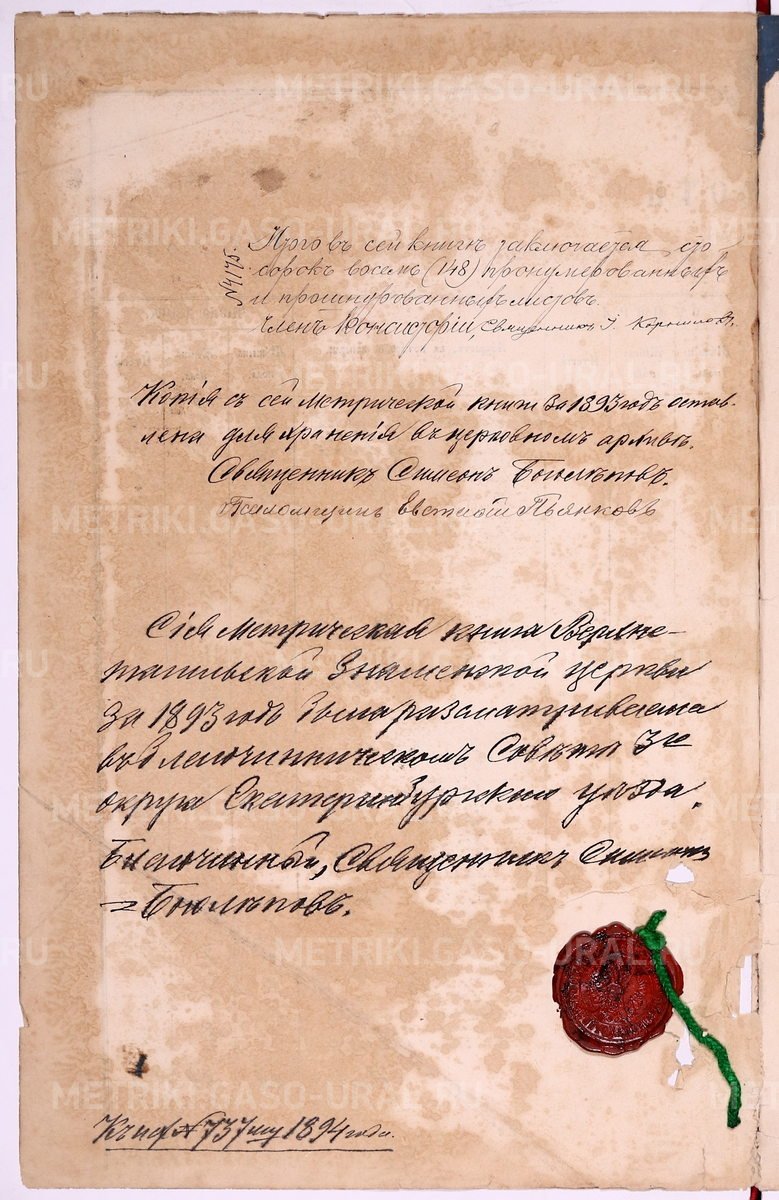 № 4175.
Итого въ сей книгѣ заключается сто
сорокъ восемь (148) пронумерованныхъ
и прошнурованныхъ листовъ.
Членъ Консисторіи, Священникъ І.
Копія съ сей метрической книги за 1893 годъ остав-
лена для храненія въ церковномъ архивѣ.
Священникъ Симеонъ Боголѣповъ.
Псаломщикъ Евстафій Пьянковъ
Сія метрическая книга Верхне-
тагильской Знаменской церкви
за 1893 годъ была разсматриваема
въ Благочинническомъ Совѣтѣ 3го
округа Екатеринбургскаго уѣзда.
Благочинный, Священникъ Симеонъ
Боголѣповъ.
Къ № 737 1894 года.
METRIKI.GASO-URAL.RU